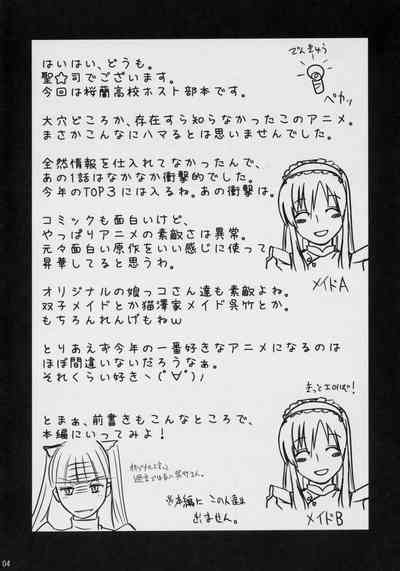 はいはい、どうも。
聖☆司でございます。
今回は桜蘭高校ホスト部本です。
大穴どころか、存在すら知らなかったこのアニメ。
まさかこんなにハマるとは思いませんでした。
全然情報を仕入れてなかったんで、
あの1話はなかなか衝撃的でした。
今年のTOP3には入るね。あの衝撃は。
コミックも面白いけど、
やっぱりアニメの素敵さは異常。
元々面白い原作をいい感じに使って
昇華してると思うわ。
オリジナルの娘っコさん達も素敵よね。
双子メイドとか猫澤家メイド呉竹とか。
もちろんれんげもねw
とりあえず今年の一番好きなアニメになるのは
ほぼ間違いないだろうなぁ。
それくらい好きヽ(ﾟ∀ﾟ)ﾉ
とまぁ、前書きもこんなところで、
本編にいってみよ!
でんきゅう
ペカッ
メイドA
メイドB
※本編に この人達は
出ません。
04